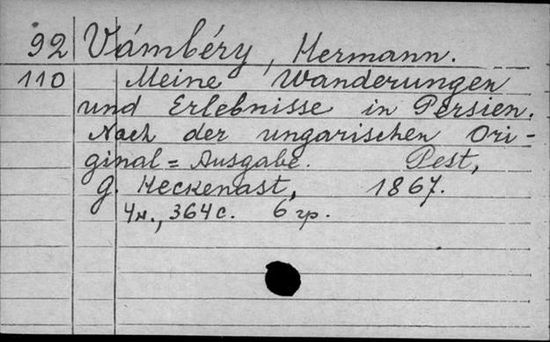 92 Vámbéry, Hermann.
110 Meine Wanderungen
und Erlebnisse in Persien.
Nach der ungarischen Ori-
ginal=Ausgabe. Pest,
G. Heckenast, 1867.
4н., 364 с. 6 гр.